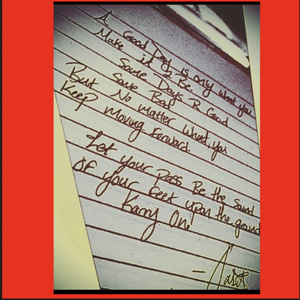 A Good Day is only what you
Make it to Be.
Some Days R Good
Some Bad
But No matter What, you
Keep moving forward.
Let your pass Be the Sound
of your feet upon the ground
Karry On.